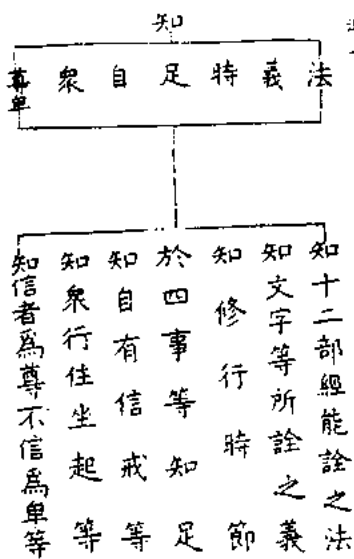 知
法
義
時
足
自
眾
尊卑
知十二部經能詮之法
知文字等所詮之義
知修行時節
於四事等知足
知自有信戒等
知眾行住坐起等
知信者為尊不信為卑等